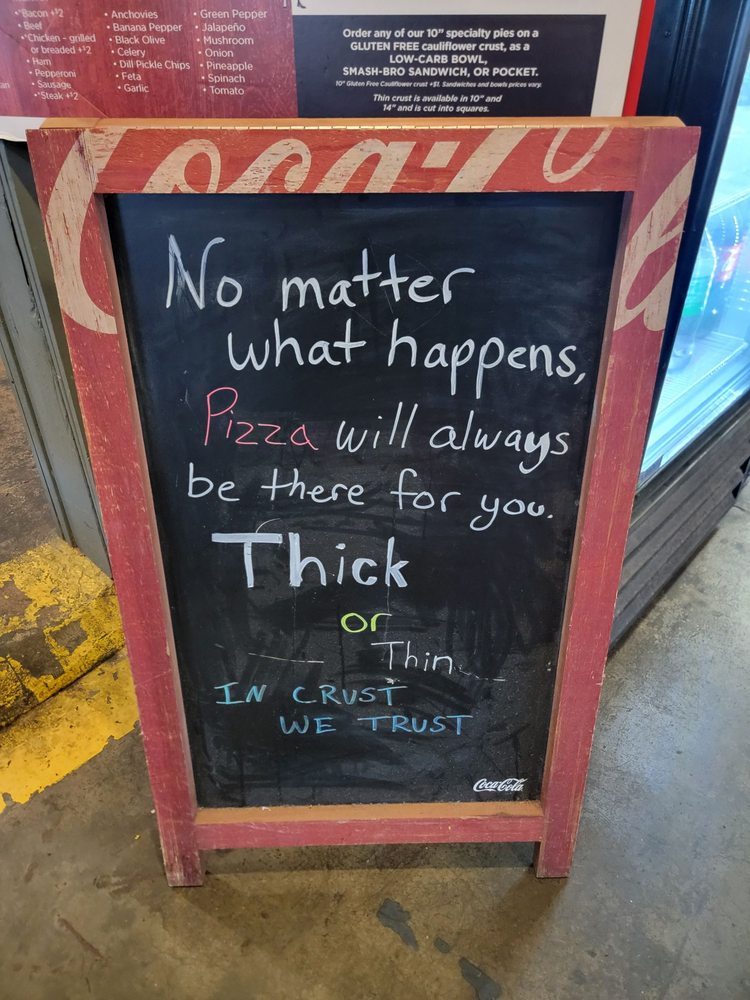 • Bacon +$2
• Beef
• *Chicken - grilled
or breaded +$2
• Ham
• Pepperoni
• Sausage
• *Steak +$2
• Anchovies
• Banana Pepper
• Black Olive
• Celery
• Dill Pickle Chips
• Feta
• Garlic
• Green Pepper
• Jalapeño
• Mushroom
• Onion
• Pineapple
• Spinach
• Tomato
Order any of our 10" specialty pies on a
GLUTEN FREE cauliflower crust, as a
LOW-CARB BOWL,
SMASH-BRO SANDWICH, OR POCKET.
10" Gluten Free Cauliflower crust +$1. Sandwiches and bowls prices vary.
Thin crust is available in 10" and
14" and is cut into squares.
Coca-Cola
No matter
what happens,
Pizza will always
be there for you.
Thick
or
Thin
IN CRUST
WE TRUST
Coca-Cola